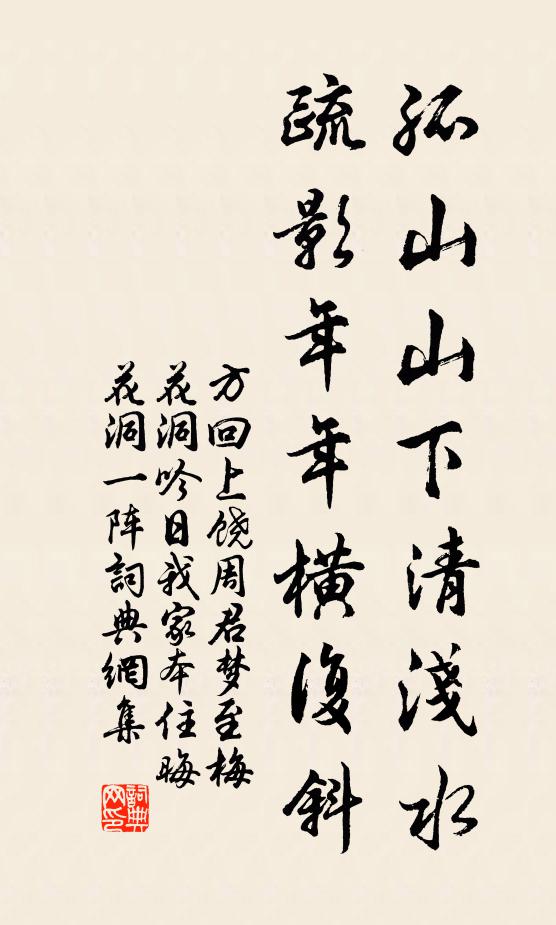 孤山山下清淺水
疏影年年橫復斜
方回上饶周君梦至梅
花洞吟日我家本住晦
花洞一阵詞典網集
詞典网印